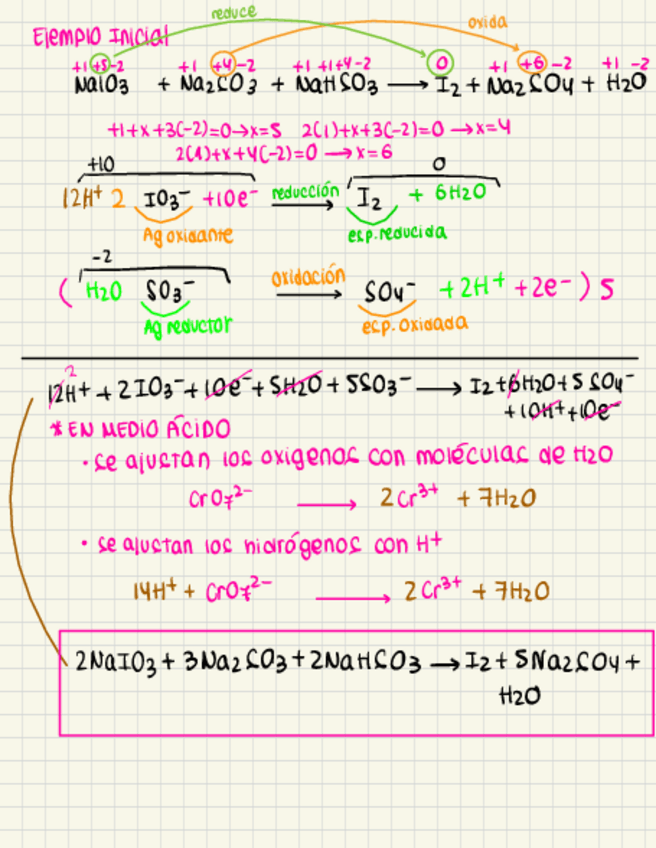 reduce
oxida
Ejemplo Inicial
+1 +5 -2 +1 +4 -2 +1 +1 +4 -2 0 +1 +6 -2 +1 -2
NaIO3 + Na2SO3 + NaHSO3 → I2 + Na2SO4 + H2O
+1+x+3(-2)=0→x=5 2(1)+x+3(-2)=0→x=4
2(1)+x+4(-2)=0→x=6
+10 0
12H+ 2 IO3- +10e- reducción → I2 + 6H2O
Ag oxidante esp.reducida
-2
( H2O SO3- oxidación → SO4- +2H+ +2e- ) 5
Ag reductor esp.oxidada
2
12H+ + 2IO3- + 10e- + 5H2O + 5SO3- → I2 + 6H2O + 5SO4-
+10H+ +10e-
* EN MEDIO ÁCIDO
· se ajustan los oxigenos con moléculas de H2O
CrO7²⁻ → 2Cr³⁺ + 7H2O
· se ajustan los hidrógenos con H+
14H+ + CrO7²⁻ → 2Cr³⁺ + 7H2O
2NaIO3 + 3Na2SO3 + 2NaHSO3 → I2 + 5Na2SO4 +
H2O